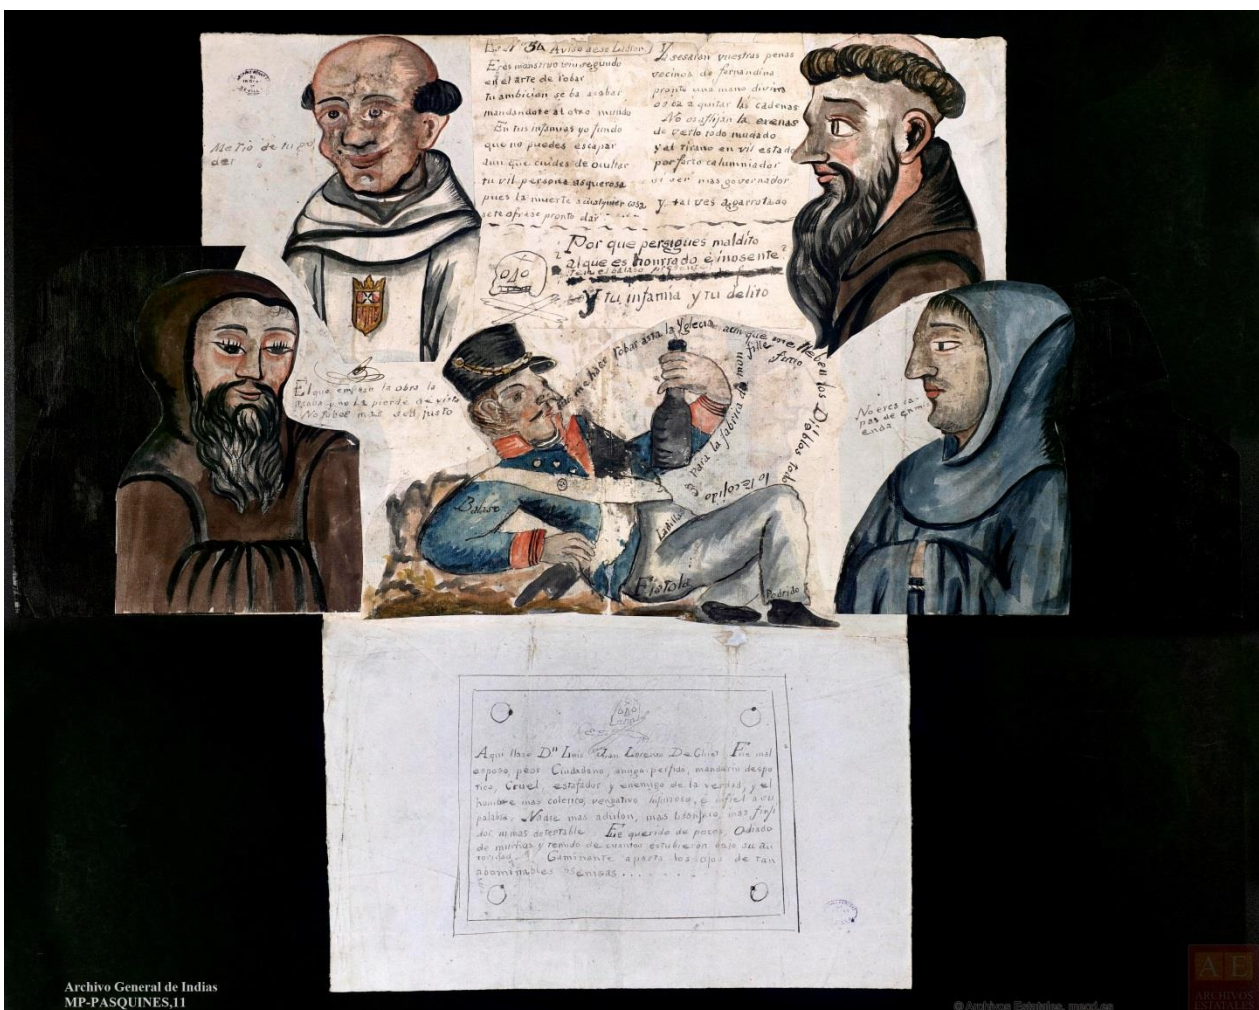 Es Nº 54 Aviso dese Ladron
Eres monstruo sin segundo
en el arte de robar
tu ambicion se ba acabar
mandandote al otro mundo
En tus infamias yo fundo
que no puedes escapar
aun que cuides de ocultar
tu vil persona asquerosa
pues la muerte a cualquier cosa
se te ofrese pronto dar
Y sesaran vuestras penas
vecinos de fernandina
pronto una mano divina
os ba a quitar las cadenas
No os aflijan la
de verlo todo mudado
y al tirano en vil estado
por farto calumniador
si ser mas governador
y tal ves agarrotado
¿Por que persigues maldito
al que es honrrado é inosente?
Y tu infamia y tu delito
Me Rio de tu po
der
El que empesan la obra la
acaba y no la pierde de vista
No robes mas se justo
No eres ca-
pas de enmi
enda
me hace robar asta la Yglecia aun que me lleben los Diablos todo
lo Recojido
es para la fabrica de mon
fille
firrio
Balaso
Ladillas
Fistola
Podrido
Aqui llase Dⁿ Luis Lorenzo De Cluet Fue mal
esposo, peor Ciudadano, amigo perfido, mandarin despo
tico, Cruel, estafador y enemigo de la verdad, y el
hombre mas colerico, vengativo, é infiel a su
palabra. Nadie mas adulon, mas lisonjero, mas finji
dor, ni mas detestable. Fue querido de pocos, Odiado
de muchos y temido de cuantos estubieron bajo su au
toridad. Caminante aparta los ojos de tan
abominables senisas
Archivo General de Indias
MP-PASQUINES,11
AE
ARCHIVOS
ESTATALES
© Archivos Estatales, mecd.es